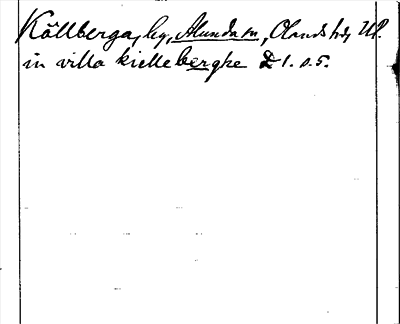 Källberga, by, Alunda sn, Olands hd, Upl.
in villa kielleberghe D 1. s. 5.